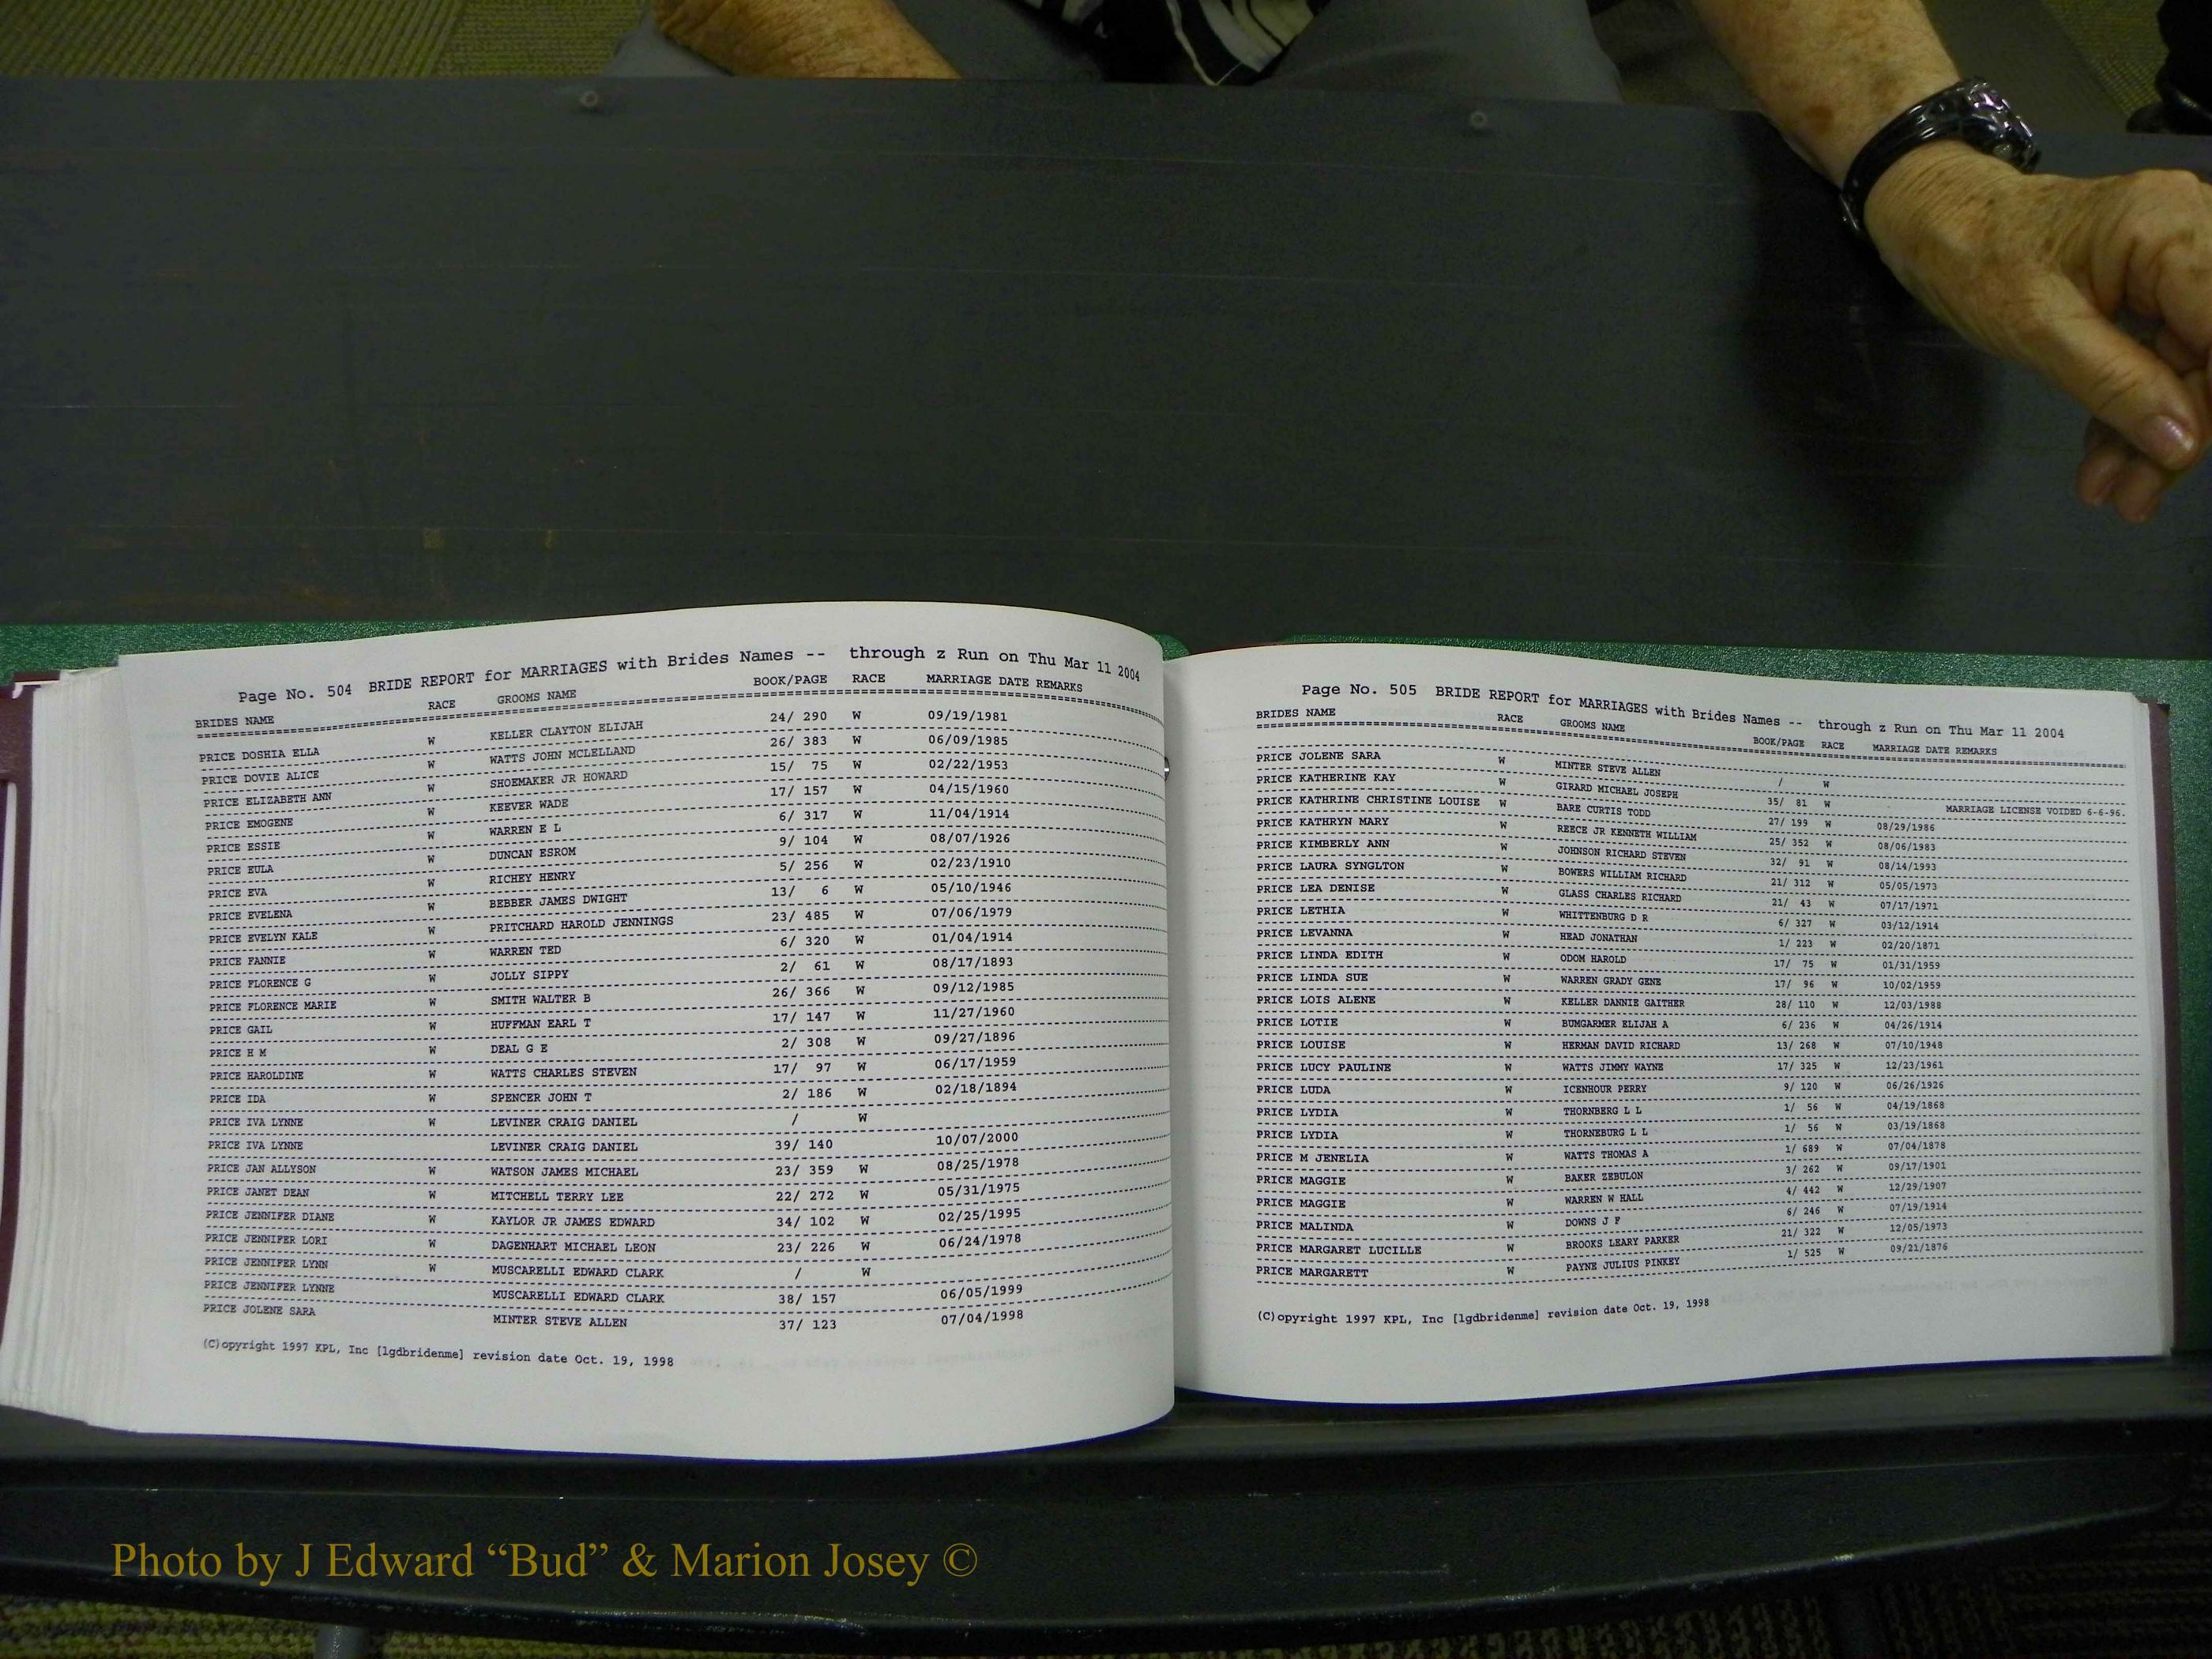 Page No. 504 BRIDE REPORT for MARRIAGES with Brides Names -- through z Run on Thu Mar 11 2004
BRIDES NAME RACE GROOMS NAME BOOK/PAGE RACE MARRIAGE DATE REMARKS
PRICE DOSHIA ELLA W KELLER CLAYTON ELIJAH 24/ 290 W 09/19/1981
PRICE DOVIE ALICE W WATTS JOHN MCLELLAND 26/ 383 W 06/09/1985
PRICE ELIZABETH ANN W SHOEMAKER JR HOWARD 15/ 75 W 02/22/1953
PRICE EMOGENE W KEEVER WADE 17/ 157 W 04/15/1960
PRICE ESSIE W WARREN E L 6/ 317 W 11/04/1914
PRICE EULA W DUNCAN ESROM 9/ 104 W 08/07/1926
PRICE EVA W RICHEY HENRY 5/ 256 W 02/23/1910
PRICE EVELENA W BEBBER JAMES DWIGHT 13/ 6 W 05/10/1946
PRICE EVELYN KALE W PRITCHARD HAROLD JENNINGS 23/ 485 W 07/06/1979
PRICE FANNIE W WARREN TED 6/ 320 W 01/04/1914
PRICE FLORENCE G W JOLLY SIPPY 2/ 61 W 08/17/1893
PRICE FLORENCE MARIE W SMITH WALTER B 26/ 366 W 09/12/1985
PRICE GAIL W HUFFMAN EARL T 17/ 147 W 11/27/1960
PRICE H M W DEAL G E 2/ 308 W 09/27/1896
PRICE HAROLDINE W WATTS CHARLES STEVEN 17/ 97 W 06/17/1959
PRICE IDA W SPENCER JOHN T 2/ 186 W 02/18/1894
PRICE IVA LYNNE W LEVINER CRAIG DANIEL / W
PRICE IVA LYNNE LEVINER CRAIG DANIEL 39/ 140 10/07/2000
PRICE JAN ALLYSON W WATSON JAMES MICHAEL 23/ 359 W 08/25/1978
PRICE JANET DEAN W MITCHELL TERRY LEE 22/ 272 W 05/31/1975
PRICE JENNIFER DIANE W KAYLOR JR JAMES EDWARD 34/ 102 W 02/25/1995
PRICE JENNIFER LORI W DAGENHART MICHAEL LEON 23/ 226 W 06/24/1978
PRICE JENNIFER LYNN W MUSCARELLI EDWARD CLARK / W
PRICE JENNIFER LYNNE MUSCARELLI EDWARD CLARK 38/ 157 06/05/1999
PRICE JOLENE SARA MINTER STEVE ALLEN 37/ 123 07/04/1998
(C)opyright 1997 KPL, Inc [lgdbridenme] revision date Oct. 19, 1998
Page No. 505 BRIDE REPORT for MARRIAGES with Brides Names -- through z Run on Thu Mar 11 2004
BRIDES NAME RACE GROOMS NAME BOOK/PAGE RACE MARRIAGE DATE REMARKS
PRICE JOLENE SARA W MINTER STEVE ALLEN / W MARRIAGE LICENSE VOIDED 6-6-96.
PRICE KATHERINE KAY W GIRARD MICHAEL JOSEPH 35/ 81 W
PRICE KATHRINE CHRISTINE LOUISE W BARE CURTIS TODD 27/ 199 W 08/29/1986
PRICE KATHRYN MARY W REECE JR KENNETH WILLIAM 25/ 352 W 08/06/1983
PRICE KIMBERLY ANN W JOHNSON RICHARD STEVEN 32/ 91 W 08/14/1993
PRICE LAURA SYNGLTON W BOWERS WILLIAM RICHARD 21/ 312 W 05/05/1973
PRICE LEA DENISE W GLASS CHARLES RICHARD 21/ 43 W 07/17/1971
PRICE LETHIA W WHITTENBURG D R 6/ 327 W 03/12/1914
PRICE LEVANNA W HEAD JONATHAN 1/ 223 W 02/20/1871
PRICE LINDA EDITH W ODOM HAROLD 17/ 75 W 01/31/1959
PRICE LINDA SUE W WARREN GRADY GENE 17/ 96 W 10/02/1959
PRICE LOIS ALENE W KELLER DANNIE GAITHER 28/ 110 W 12/03/1988
PRICE LOTIE W BUMGARMER ELIJAH A 6/ 236 W 04/26/1914
PRICE LOUISE W HERMAN DAVID RICHARD 13/ 268 W 07/10/1948
PRICE LUCY PAULINE W WATTS JIMMY WAYNE 17/ 325 W 12/23/1961
PRICE LUDA W ICENHOUR PERRY 9/ 120 W 06/26/1926
PRICE LYDIA W THORNBERG L L 1/ 56 W 04/19/1868
PRICE LYDIA W THORNEBURG L L 1/ 56 W 03/19/1868
PRICE M JENELIA W WATTS THOMAS A 1/ 689 W 07/04/1878
PRICE MAGGIE W BAKER ZEBULON 3/ 262 W 09/17/1901
PRICE MAGGIE W WARREN W HALL 4/ 442 W 12/29/1907
PRICE MALINDA W DOWNS J F 6/ 246 W 07/19/1914
PRICE MARGARET LUCILLE W BROOKS LEARY PARKER 21/ 322 W 12/05/1973
PRICE MARGARETT W PAYNE JULIUS PINKEY 1/ 525 W 09/21/1876
(C)opyright 1997 KPL, Inc [lgdbridenme] revision date Oct. 19, 1998
Photo by J Edward “Bud” & Marion Josey ©